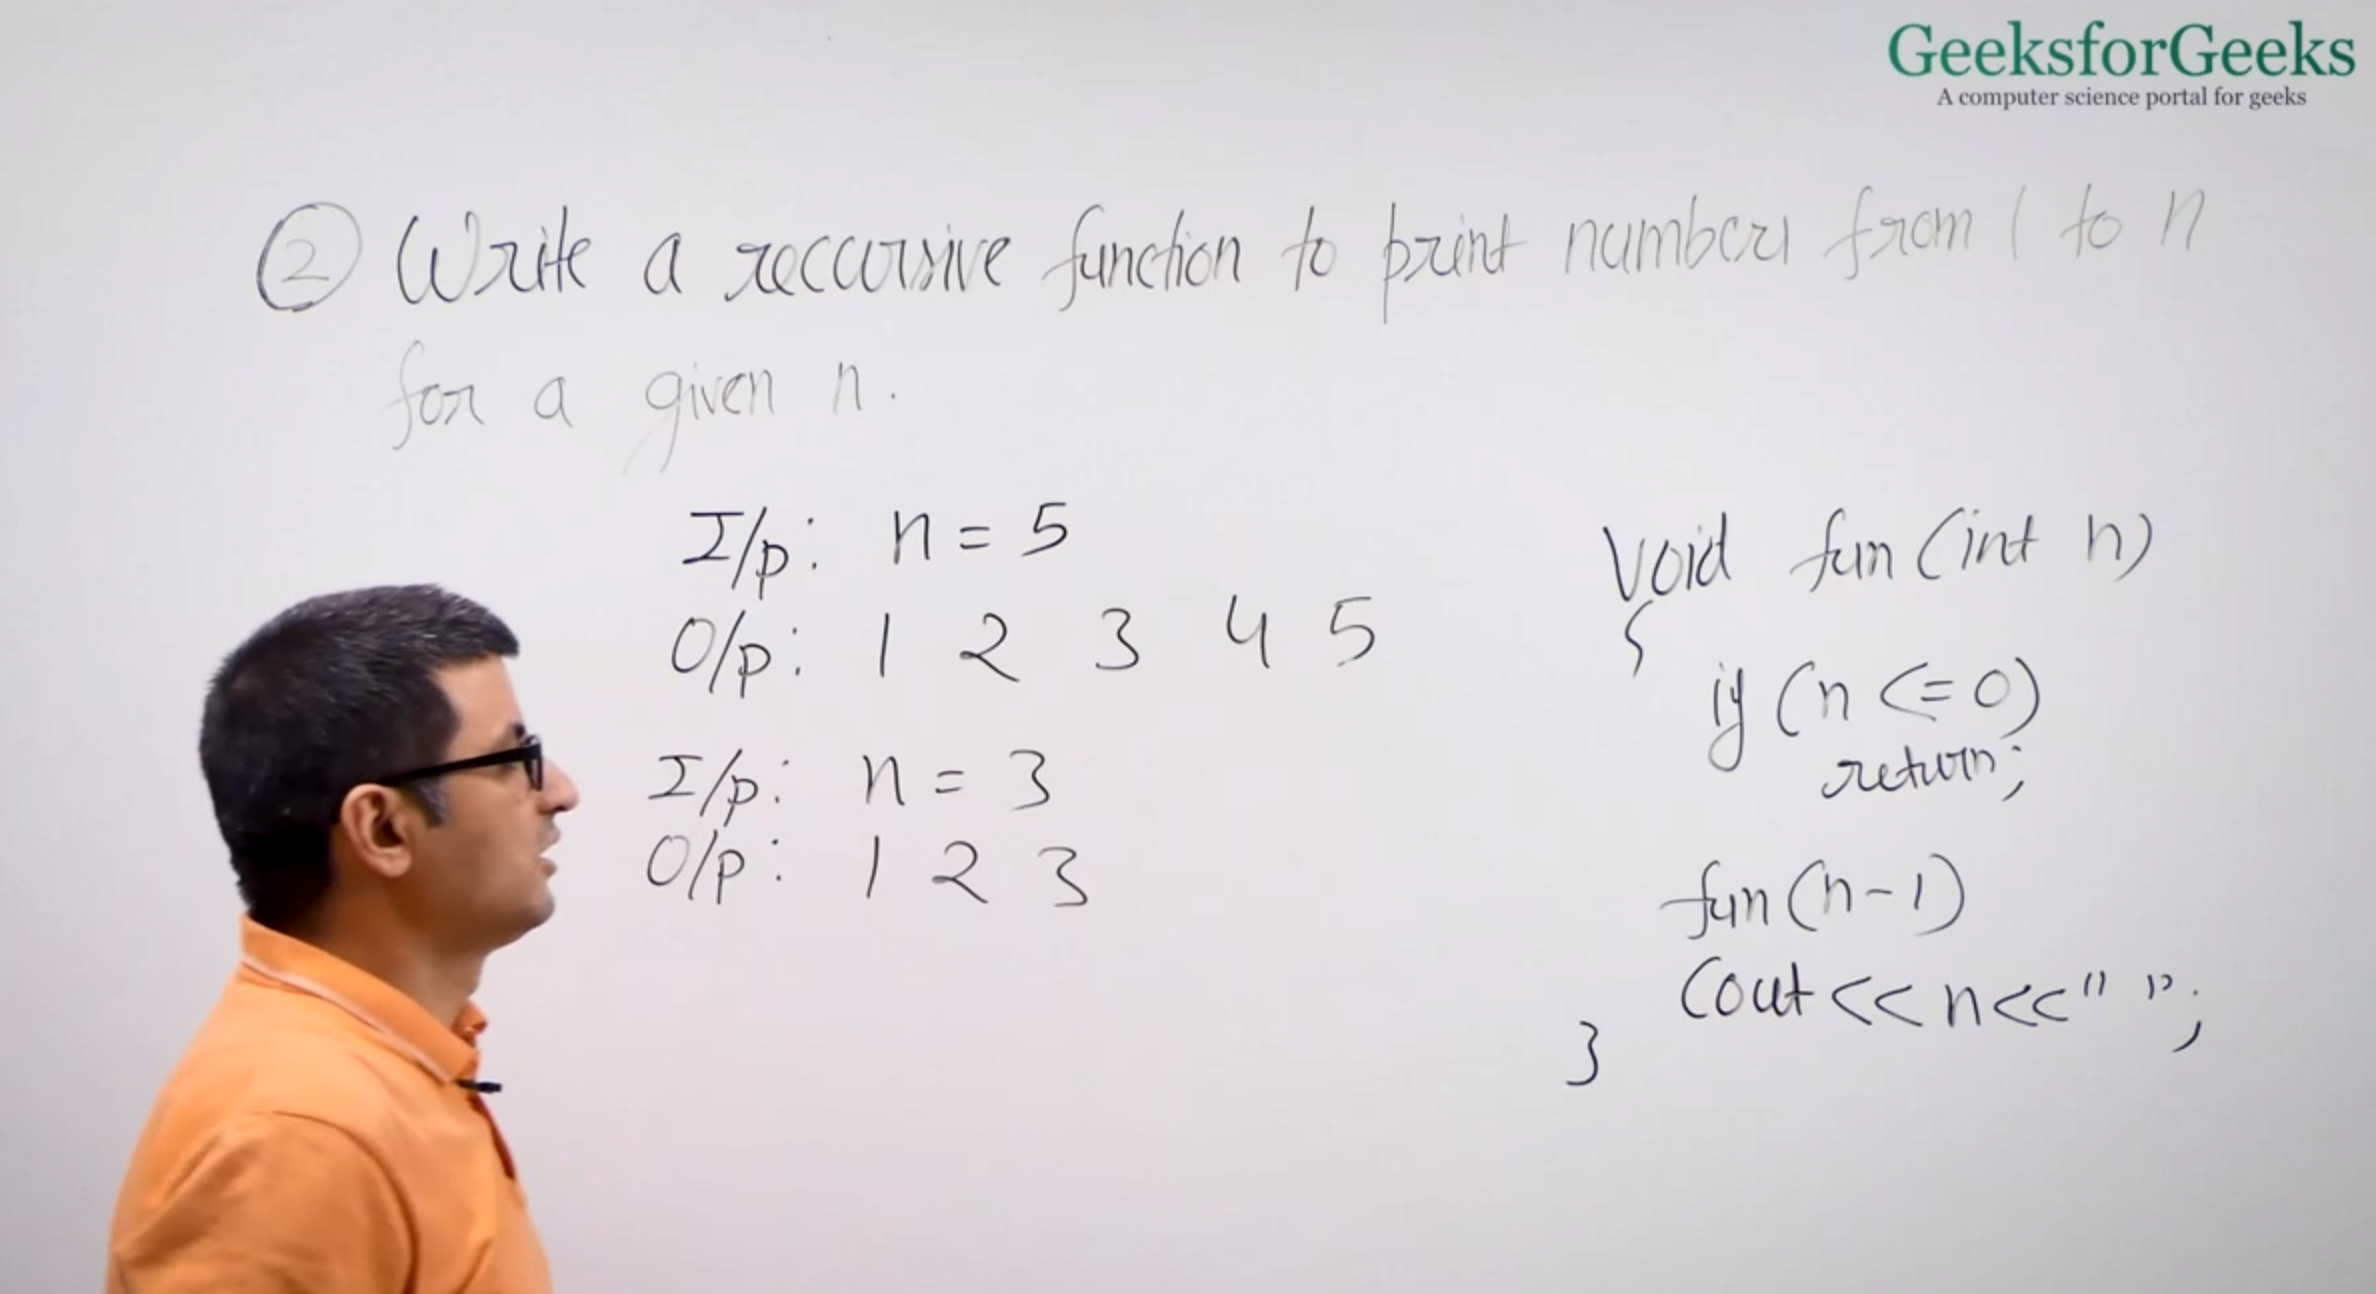 GeeksforGeeks
A computer science portal for geeks
2 Write a reccursive function to print numbers from 1 to n
for a given n.
I/p: n = 5
O/p: 1 2 3 4 5
I/p: n = 3
O/p: 1 2 3
Void fun (int n)
{
if (n <= 0)
return;
fun (n-1)
Cout << n << " ";
}